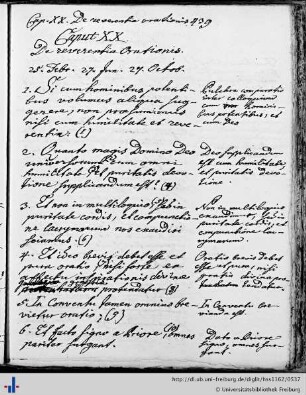 Cap. XX. De reverentia orationis 439
Caput XX.
De reverentia Orationis.
25. Febr. 27. Jun. 27. Octob.
1. Si cum hominibus potenti-
bus volumus aliqua sug-
gerere, non praesumimus
nisi cum humilitate et reve-
rentia: (1)
2. Quanto magis Domino Deo
universorum cum omni
humilitate et puritatis devo-
tione supplicandum est!
3. Et non in multiloquio, sed in
puritate cordis, et compunctione
lacrymarum nos exaudiri
sciamus. (6)
4. Et ideo brevis debet esse et
pura oratio, nisi forte
affectu inspirationis divinae
protendatur (8)
5. In Conventu tamen omnino bre-
vietur oratio; (9)
6. Et facto signo a Priore, omnes
pariter surgant.
colloquium
cum
potentibus, et
cum Deo
Deo supplicandum
est cum humilitate,
et puritatis devo-
tione.
Non in multiloquio
puritate cordis, et
compunctione lac-
rymarum.
Oratio brevis debet
esse
In Conventu bre-
Dato a Priore
signo, omnes sur-
gant.
http://dl.ub.uni-freiburg.de/diglit/hs1367/0537
© Universitätsbibliothek Freiburg